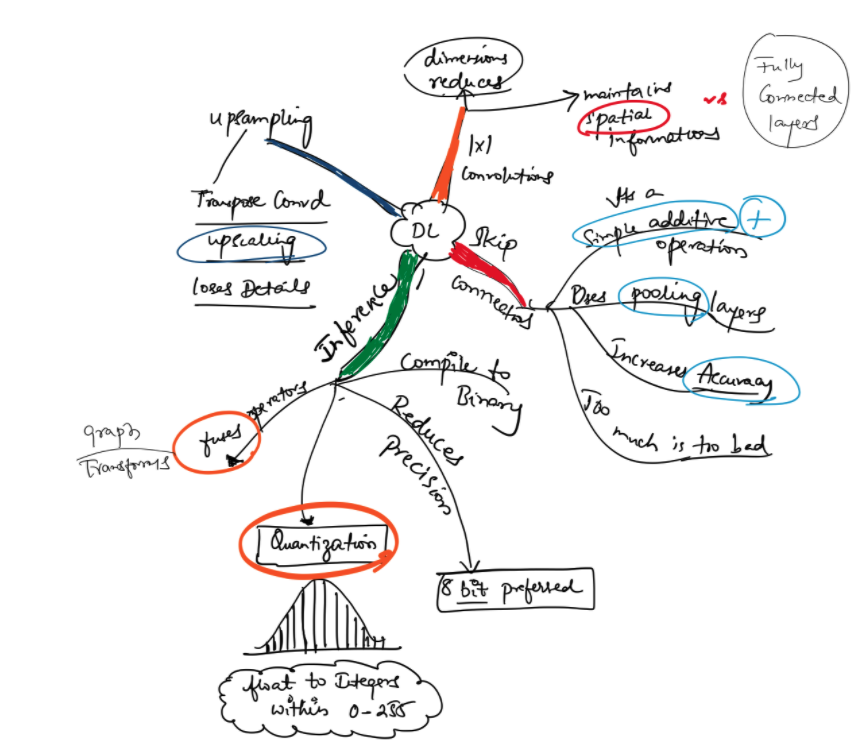 dimensions
reduces
maintains
spatial
informations
vs
Fully
Connected
layers
1x1
Convolutions
upsampling
Transpose Convd
upscaling
loses Details
DL
Skip
Connections
Its a
Simple additive +
operation
Does pooling layers
Increases Accuracy
Too
much is too bad
Inference
Compile to
Binary
Reduces
precision
8 bit preferred
operators
fuses
graph
Transforms
Quantization
float to Integers
within 0-255